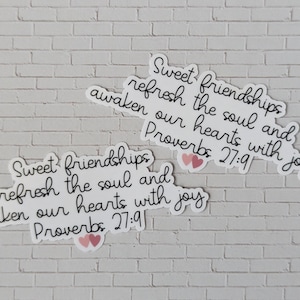 Sweet friendships
refresh the soul and
awaken our hearts with jo
Proverbs 27:9
Sweet friendships
refresh the soul and
ken our hearts with joy
Proverbs 27:9